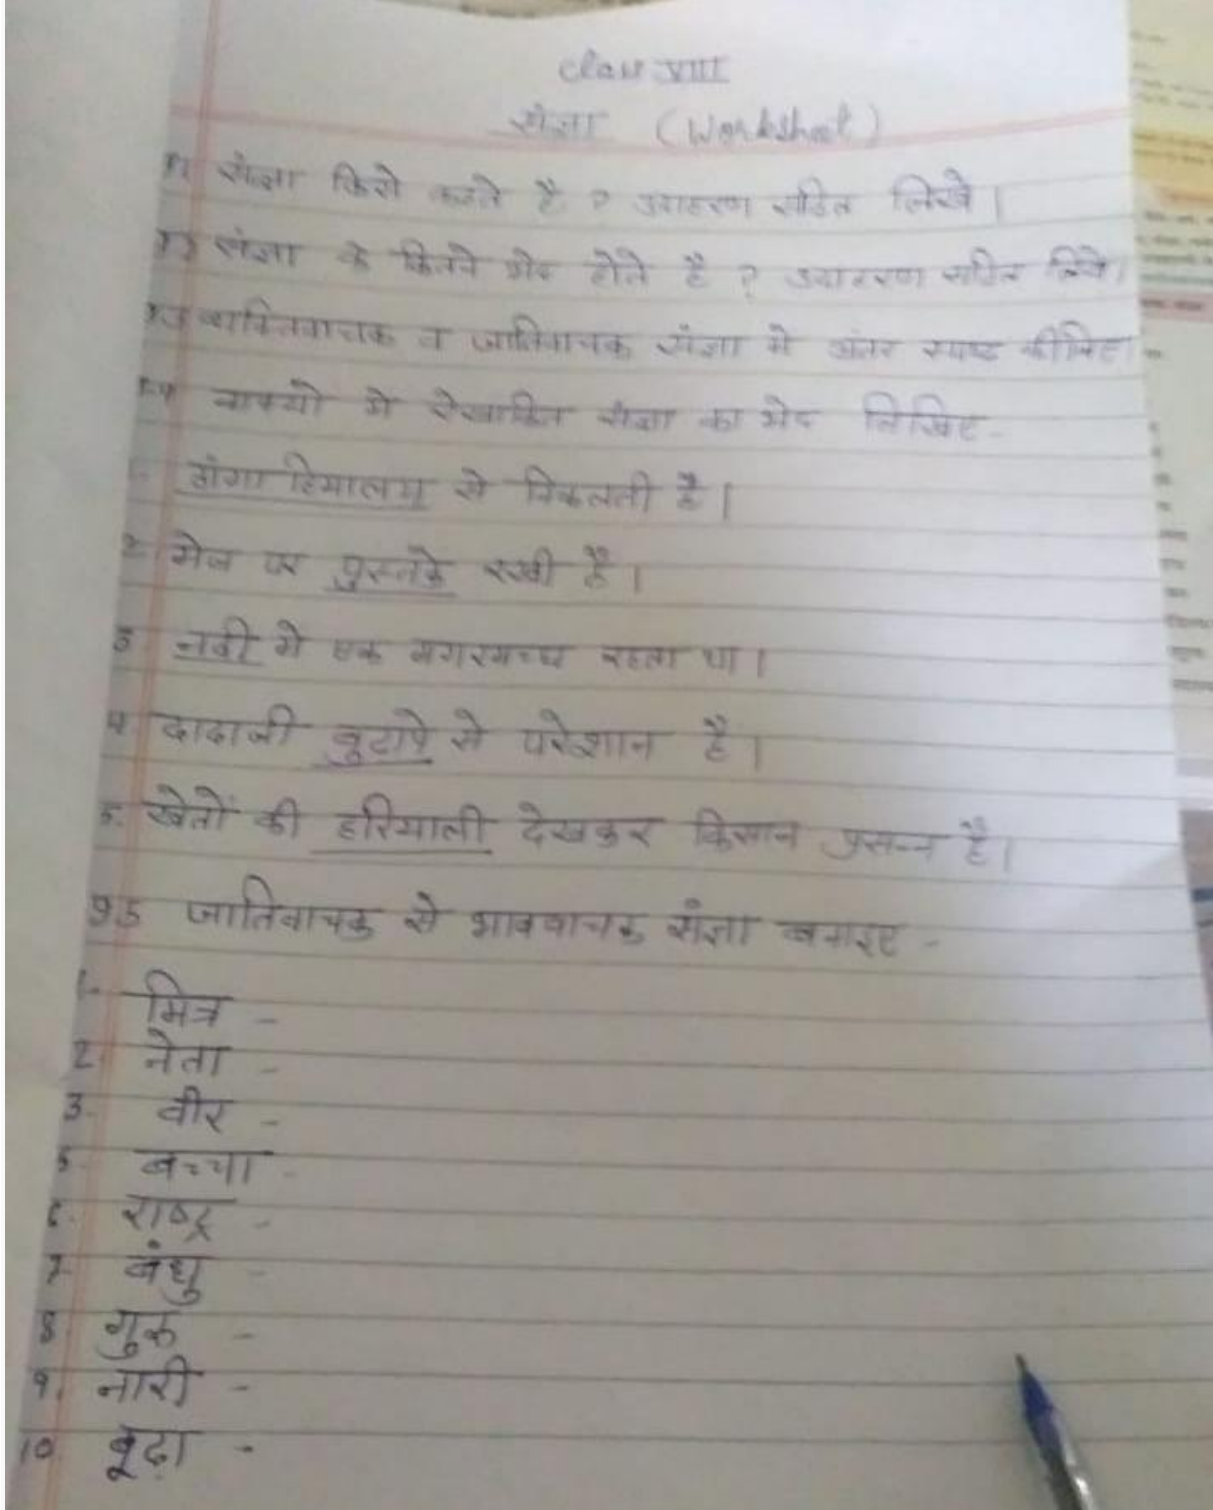 Class VIII
संज्ञा (Worksheet)
प्र1 संज्ञा किसे कहते है ? उदाहरण सहित लिखे।
प्र2 संज्ञा के कितने भेद होते है ? उदाहरण सहित लिखे।
प्र3 व्यक्तिवाचक व जातिवाचक संज्ञा मे अंतर स्पष्ट कीजिए।
प्र4 वाक्यो मे रेखांकित संज्ञा का भेद लिखिए-
1. गंगा हिमालय से निकलती है।
2 मेज पर पुस्तके रखी है।
3 नदी मे एक मगरमच्छ रहता था।
4 दादाजी बुढापे से परेशान है।
5. खेतों की हरियाली देखकर किसान प्रसन्न है।
प्र5 जातिवाचक से भाववाचक संज्ञा बनाइए -
1. मित्र -
2. नेता -
3. वीर -
5. बच्चा -
6. राष्ट्र -
7. बंधु -
8 गुरू -
9. नारी -
10. बूढ़ा -